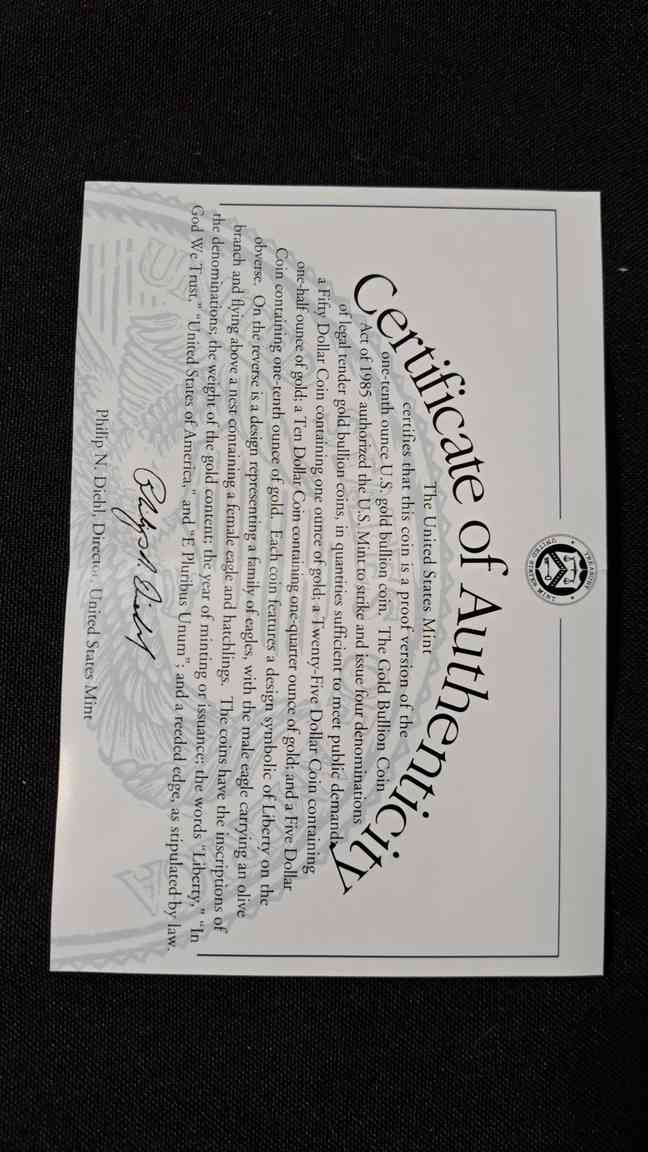 Certificate of Authenticity
The United States Mint
certifies that this coin is a proof version of the
one-tenth ounce U.S. gold bullion coin. The Gold Bullion Coin
Act of 1985 authorized the U.S. Mint to strike and issue four denominations
of legal tender gold bullion coins, in quantities sufficient to meet public demand,
a Fifty Dollar Coin containing one ounce of gold; a Twenty-Five Dollar Coin containing
one-half ounce of gold; a Ten Dollar Coin containing one-quarter ounce of gold; and a Five Dollar
Coin containing one-tenth ounce of gold. Each coin features a design symbolic of Liberty on the
obverse. On the reverse is a design representing a family of eagles, with the male eagle carrying an olive
branch and flying above a nest containing a female eagle and hatchlings. The coins have the inscriptions of
the denominations; the weight of the gold content; the year of minting or issuance; the words "Liberty," "In
God We Trust," "United States of America," and "E Pluribus Unum"; and a reeded edge, as stipulated by law.
Philip N. Diehl
Philip N. Diehl, Director, United States Mint